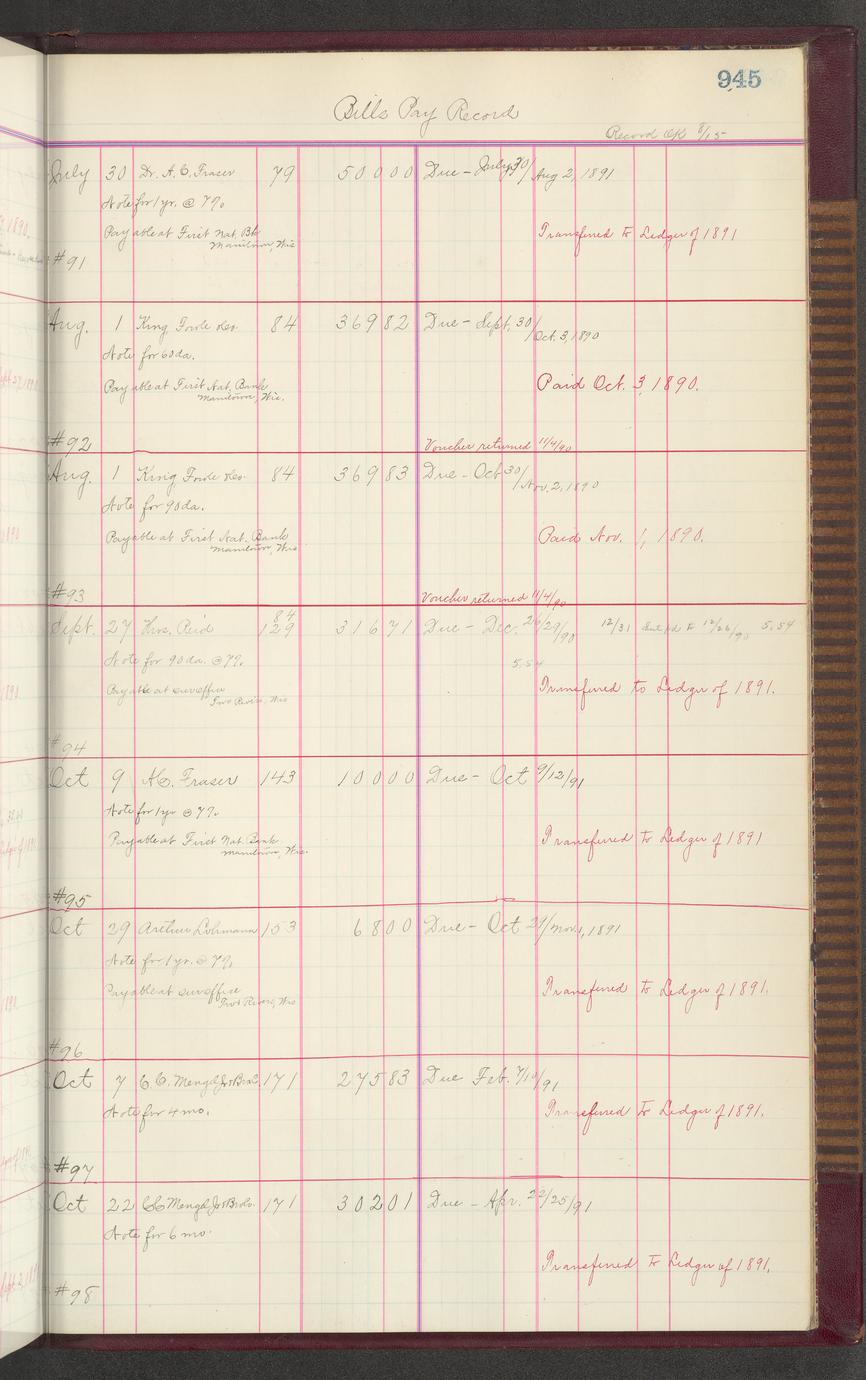 945
Bills Pay Record
Record OK 8/15
July 30 Dr. A. C. Fraser 79 50000 Due - July 30/Aug 2, 1891
Note for 1 yr. @ 7%
Payable at First Nat. Bk
Wis
Transferred to Ledger of 1891
#91
Aug. 1 King Forde 84 36982 Due - Sept. 30/Oct. 3, 1890
Note for 60 da.
Payable at First Nat. Bank
Wis.
Paid Oct. 3, 1890.
#92 Voucher returned 11/4/90
Aug. 1 King Forde 84 36983 Due - Oct 30/Nov. 2, 1890
Note for 90 da.
Payable at First Nat. Bank
Wis
Paid Nov. 1, 1890.
#93 Voucher returned 11/4/90
84
Sept. 27 Reid 129 31671 Due - Dec. 26/29/90 12/31 to 12/26/90 5.54
Note for 90 da. @ 7%
5.54
Payable at our office
Two Rivers, Wis
Transferred to Ledger of 1891.
#94
Oct 9 A.C. Fraser 143 10000 Due - Oct 9/12/91
Note for 1 yr @ 7%
Payable at First Nat. Bank
Wis.
Transferred to Ledger of 1891
#95
Oct 29 Arthur Lohmann 153 6800 Due - Oct 29/Nov. 1, 1891
Note for 1 yr. @ 7%
Payable at our office
Two Rivers, Wis
Transferred to Ledger of 1891.
#96
Oct 7 C.C. Mengel Jr & Bro Co. 171 27583 Due Feb. 7/10/91
Note for 4 mo.
Transferred to Ledger of 1891.
#97
Oct 22 CC Mengel Jr & Bro Co. 171 30201 Due - Apr. 22/25/91
Note for 6 mo.
Transferred to Ledger of 1891.
#98